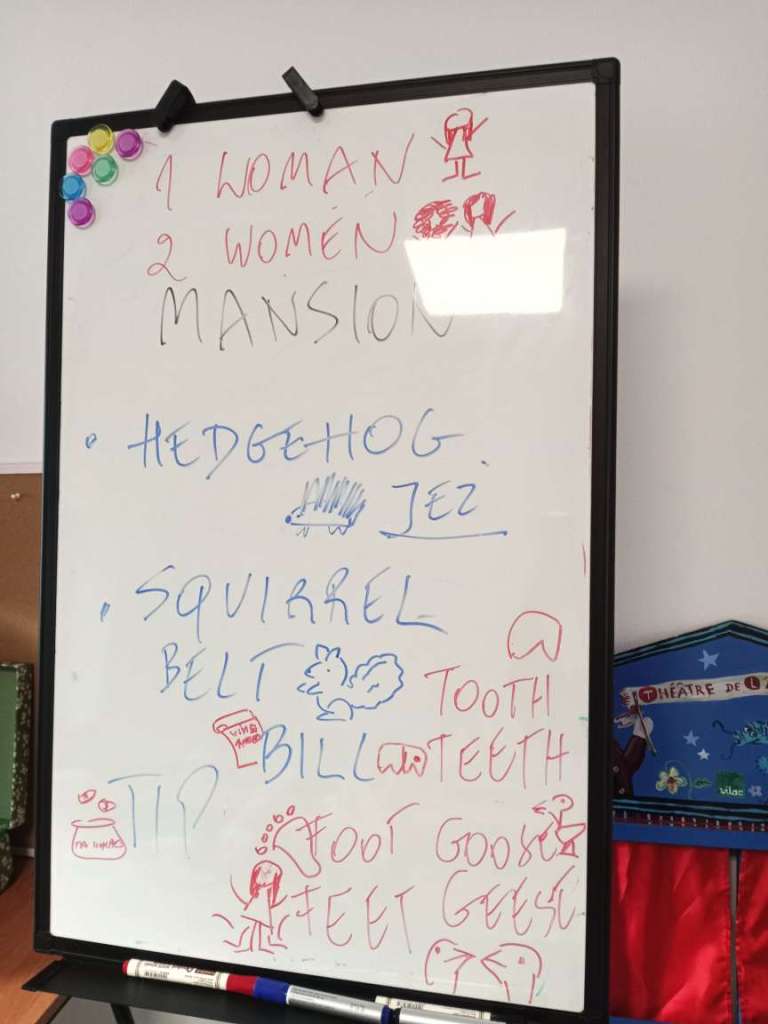 1 WOMAN
2 WOMEN
MANSION
• HEDGEHOG
JEZ
• SQUIRREL
BELT
TOOTH
BILL TEETH
TIP
FOOT GOOSE
FEET GEESE
THÉÂTRE DE L
vilac